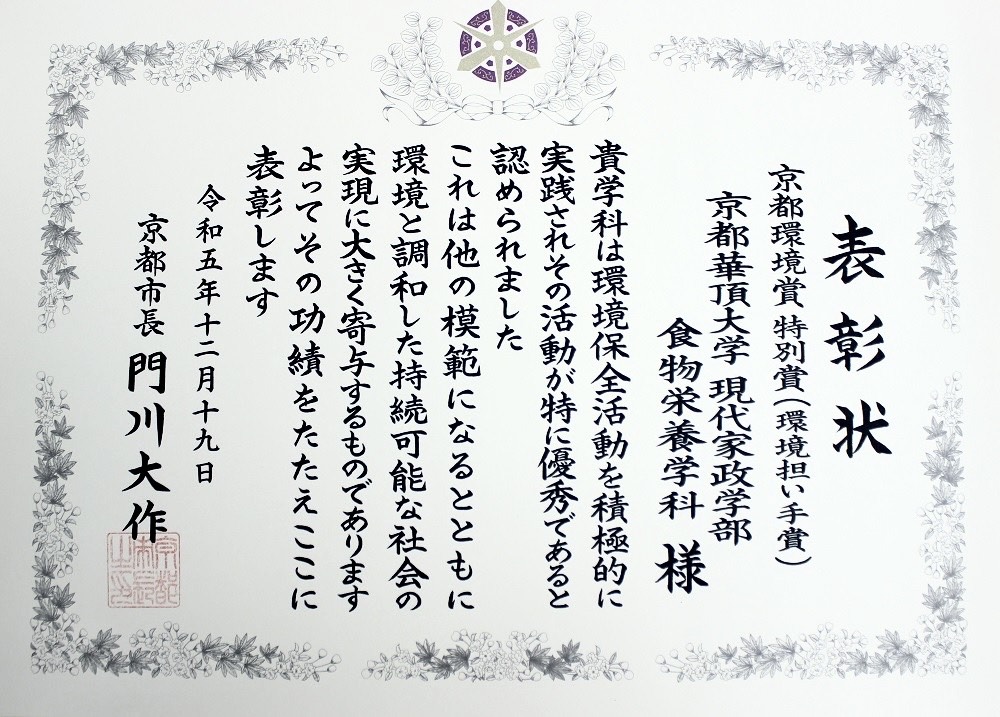 表彰状
京都環境賞 特別賞(環境担い手賞)
京都華頂大学 現代家政学部
食物栄養学科 様
貴学科は環境保全活動を積極的に
実践されその活動が特に優秀であると
認められました
これは他の模範になるとともに
環境と調和した持続可能な社会の
実現に大きく寄与するものであります
よってその功績をたたえここに
表彰します
令和五年十二月十九日
京都市長 門川大作